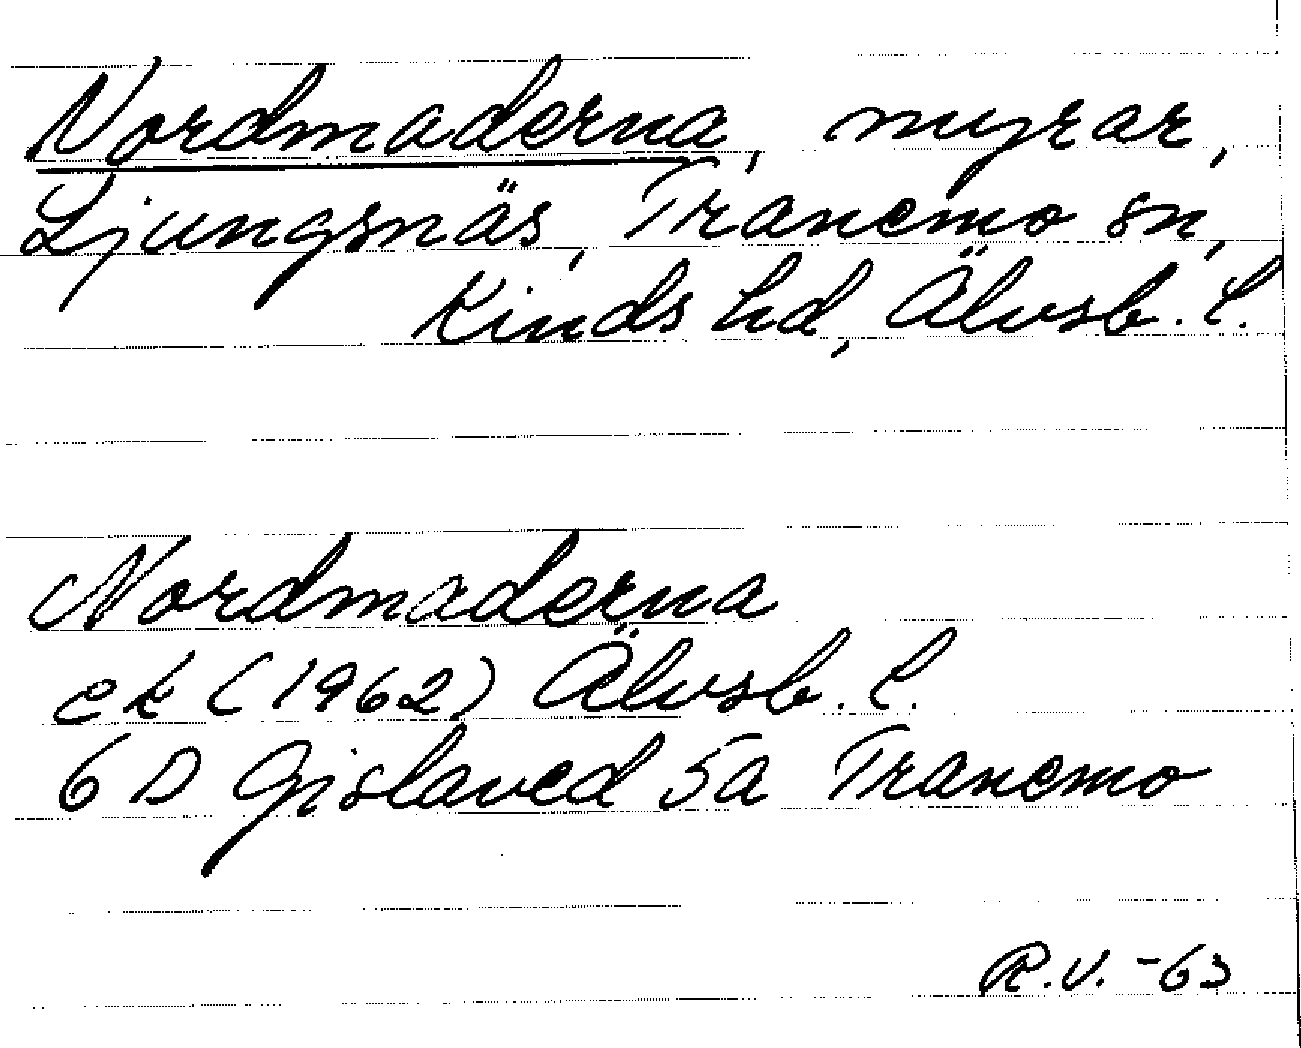 Nordmaderna, myrar,
Ljungsnäs, Tranemo sn,
Kinds hd, Älvsb. l.
Nordmaderna
ek (1962) Älvsb. l.
6 D Gislaved 5a Tranemo
R.V. -63